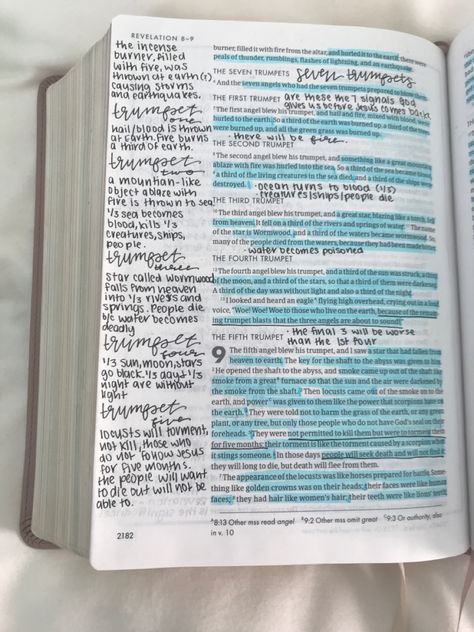 REVELATION 8–9
the incense
burner, filled
with fire, was
thrown at earth(?)
causing storms
and earthquakes.
trumpet
one
hail/blood is thrown
at earth. Fire burns
a third of earth.
trumpet
two
a mountian-like
object ablaze with
fire is thrown to sea
1/3 sea becomes
blood, kills 1/3
creatures, ships,
people.
trumpet
three
star called wormwood
falls from heaven
into 1/3 rivers and
springs. People die
b/c water becomes
deadly
trumpet
four
1/3 sun, moon, stars
go black. 1/3 day & 1/3
night are without
light
trumpet
five
locusts will torment,
not kill, those who
do not follow Jesus
for five months.
the people will want
to die but will not be
able to.
2182
burner, filled it with fire from the altar, and hurled it to the earth; there were
peals of thunder, rumblings, flashes of lightning, and an earthquake.
THE SEVEN TRUMPETS seven trumpets
⁶ And the seven angels who had the seven trumpets prepared to blow them.
THE FIRST TRUMPET are these the 7 signals God
gives us before Jesus comes back?
⁷ The first angel blew his trumpet, and hail and fire, mixed with blood, were
hurled to the earth. So a third of the earth was burned up, a third of the trees
were burned up, and all the green grass was burned up.
· there will be fire.
THE SECOND TRUMPET
⁸ The second angel blew his trumpet, and something like a great mountain
ablaze with fire was hurled into the sea. So a third of the sea became blood,
⁹ a third of the living creatures in the sea died, and a third of the ships were
destroyed. · ocean turns to blood (1/3)
· creatures/ships/people die.
THE THIRD TRUMPET
¹⁰ The third angel blew his trumpet, and a great star, blazing like a torch, fell
from heaven. It fell on a third of the rivers and springs of water. ¹¹ The name
of the star is Wormwood, and a third of the waters became wormwood. So,
many of the people died from the waters, because they had been made bitter.
· water becomes poisoned
THE FOURTH TRUMPET
¹² The fourth angel blew his trumpet, and a third of the sun was struck, a third
of the moon, and a third of the stars, so that a third of them were darkened.
A third of the day was without light and also a third of the night.
¹³ I looked and heard an eagle ᴬ flying high overhead, crying out in a loud
voice, "Woe! Woe! Woe to those who live on the earth, because of the remain-
ing trumpet blasts that the three angels are about to sound!"
· the final 3 will be worse
than the 1st four
THE FIFTH TRUMPET
9 The fifth angel blew his trumpet, and I saw a star that had fallen from
heaven to earth. The key for the shaft to the abyss was given to him.
² He opened the shaft to the abyss, and smoke came up out of the shaft like
smoke from a great ᴮ furnace so that the sun and the air were darkened by
the smoke from the shaft. ³ Then locusts came out of the smoke on to the
earth, and power ᶜ was given to them like the power that scorpions have on
the earth. ⁴ They were told not to harm the grass of the earth, or any green
plant, or any tree, but only those people who do not have God's seal on their
foreheads. ⁵ They were not permitted to kill them but were to torment them
for five months; their torment is like the torment caused by a scorpion when
it stings someone. ⁶ In those days people will seek death and will not find it;
they will long to die, but death will flee from them.
⁷ The appearance of the locusts was like horses prepared for battle. Some-
thing like golden crowns was on their heads; their faces were like human
faces; ⁸ they had hair like women's hair; their teeth were like lions' teeth;
ᴬ 8:13 Other mss read angel ᴮ 9:2 Other mss omit great ᶜ 9:3 Or authority, also
in v. 10